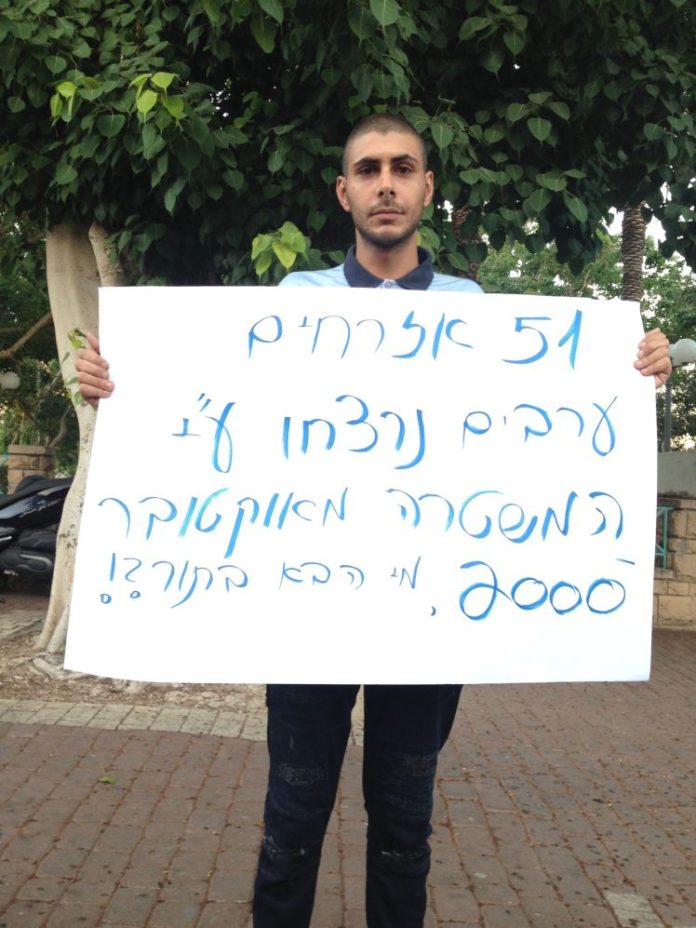 51 אזרחים
ערבים נרצחו ע"י
המשטרה מאוקטובר
2000, מי הבא בתור?!